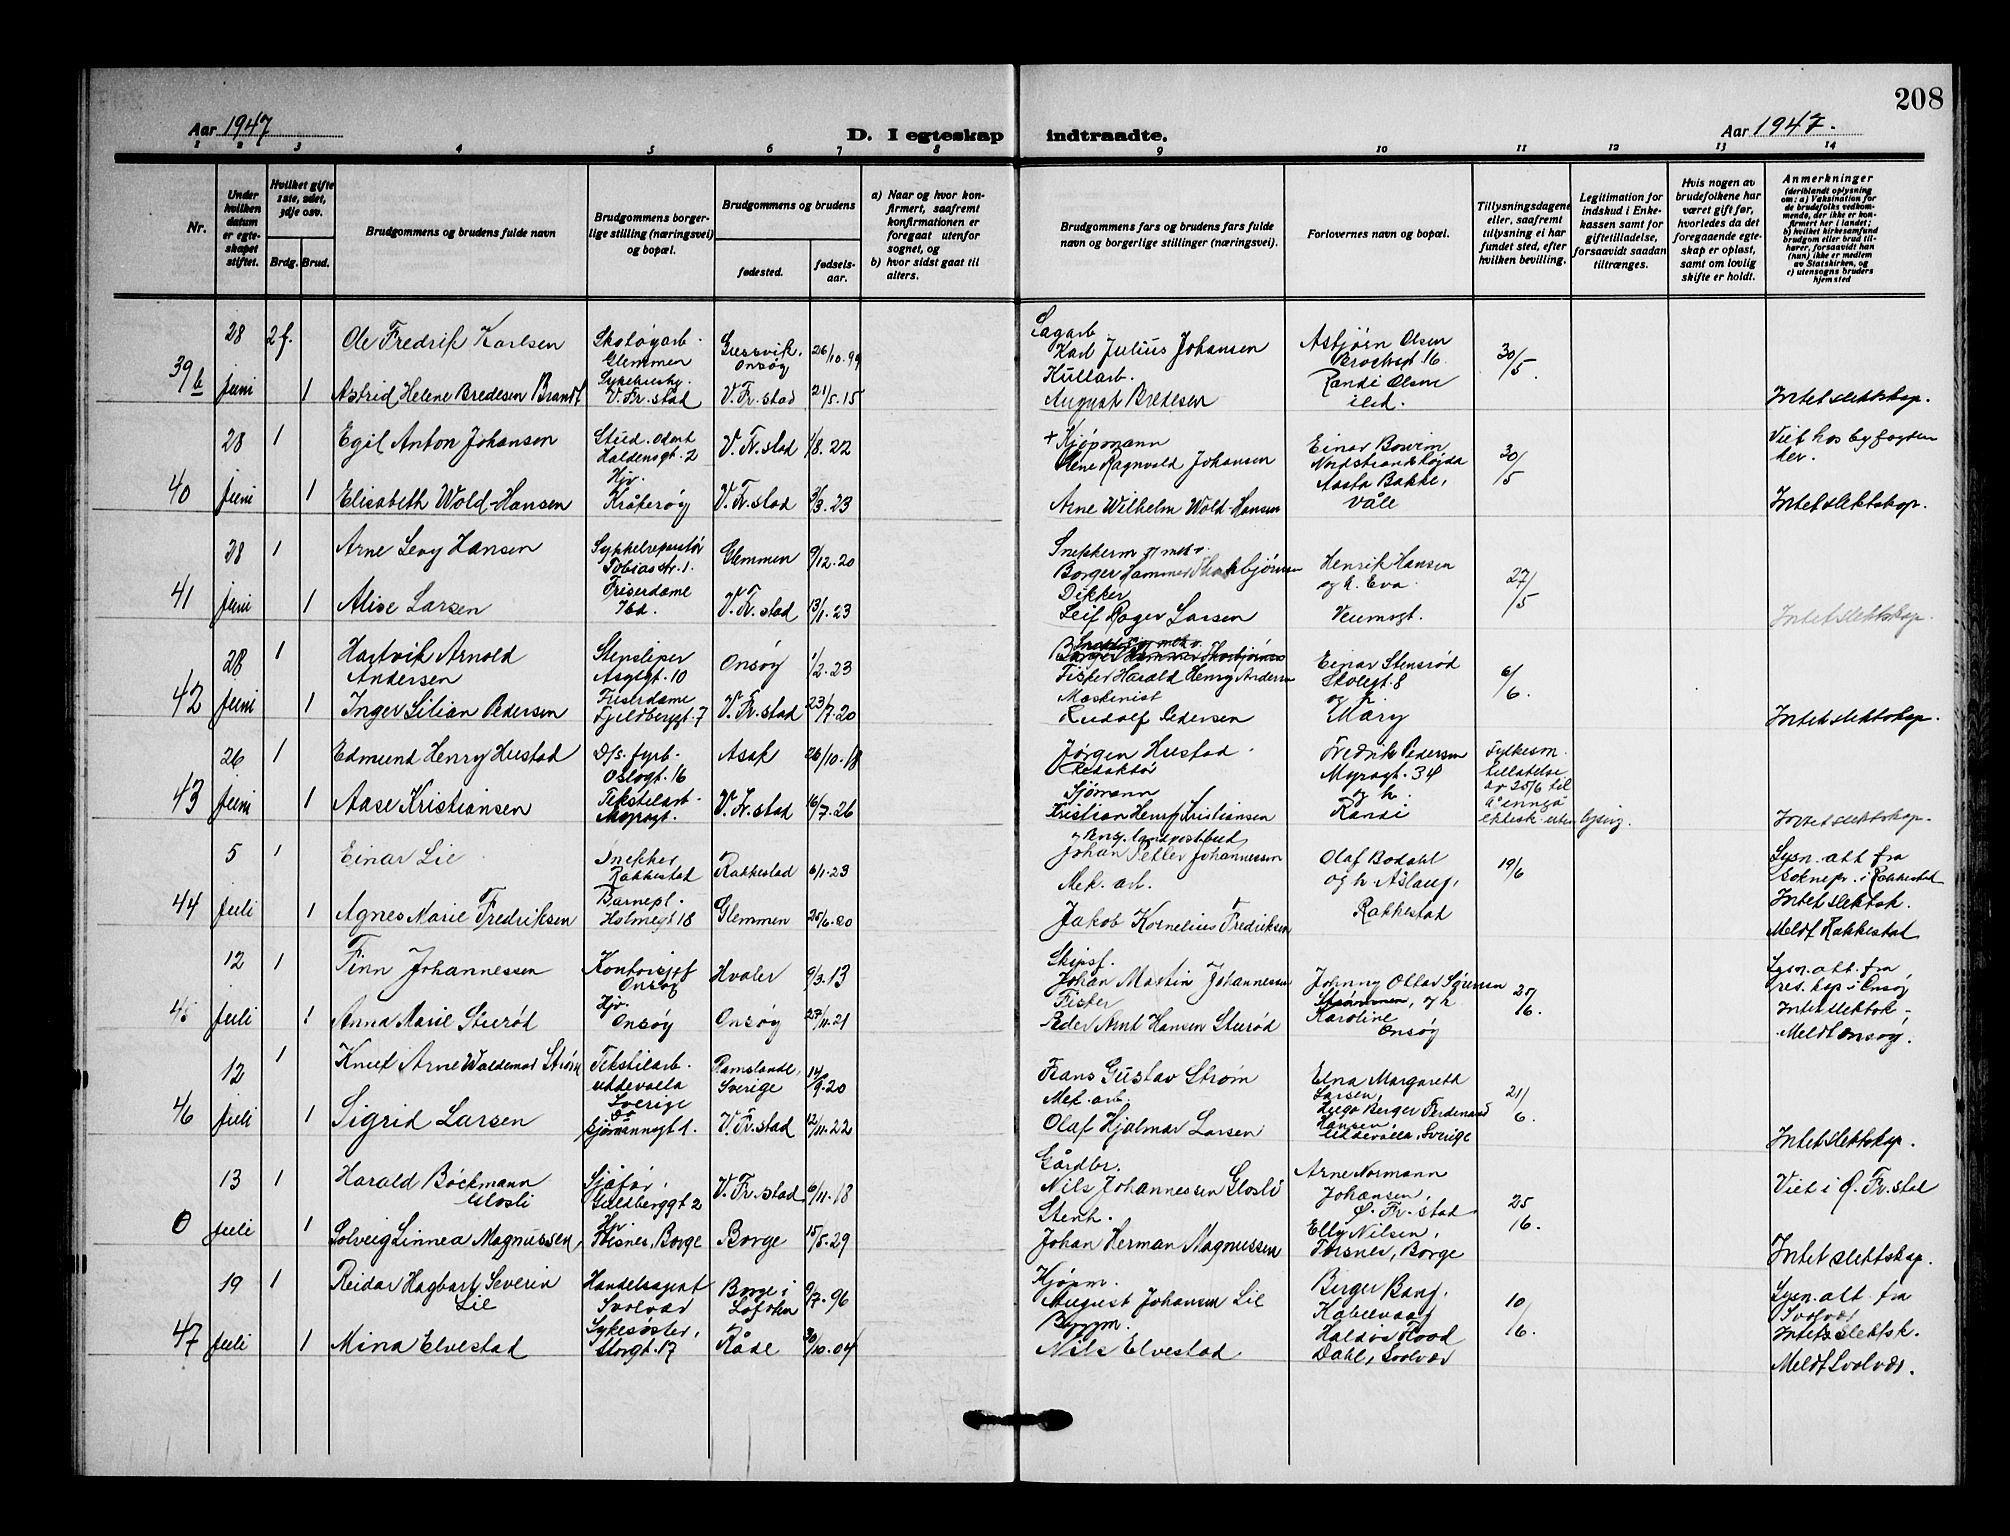 208
Aar 1947
D. I egteskap indtraadte.
Aar 1947.
1 2 3 4 5 6 7 8 9 10 11 12 13 14
Nr.
Under hvilken datum er egteskapet stiftet.
Hvilket gifte 1ste, 2det, 3dje osv.
Brdg. Brud.
Brudgommens og brudens fulde navn
Brudgommens borgerlige stilling (næringsvei) og bopæl.
Brudgommens og brudens
fødested.
fødselsaar.
a) Naar og hvor konfirmert, saafremt konfirmationen er foregaat utenfor sognet, og
b) hvor sidst gaat til alters.
Brudgommens fars og brudens fars fulde navn og borgerlige stillinger (næringsvei).
Forlovernes navn og bopæl.
Tillysningsdagene eller, saafremt tillysning ei har fundet sted, efter hvilken bevilling.
Legitimation for indskud i Enkekassen samt for giftetilladelse, forsaavidt saadan tiltrænges.
Hvis nogen av brudefolkene har været gift før, hvorledes da det foregaaende egteskap er opløst, samt om lovlig skifte er holdt.
Anmerkninger
(deriblandt oplysning om: a) Vaksination for de brudefolks vedkommende, der ikke er konfirmert her i landet; b) hvilket kirkesamfund brudgom eller brud tilhører, forsaavidt han (hun) ikke er medlem av Statskirken, og c) utensogns bruders hjemsted
39b
28 2 f. Ole Fredrik Karlsen Skotøyarb. Glemmen Gressvik, Onsøy 26/10.99 Sagarb. Karl Julius Johansen Asbjørn Olsen 16. 30/5
Juni 1 Astrid Helene Bredesen Brandt V. Fr.stad V. Fr.stad 21/5.15 Kullarb. August Bredesen Randi Olsen ibd. Intet slektskap.
40
28 1 Egil Anton Johansen Stud. Haldensgt. 2 V. Fr.stad 1/8.22 + Kjøpmann Arne Ragnvald Johansen Einar Nordstrandshøgda 30/5 Viet hos byfogden her.
Juni 1 Elisabeth Wold-Hansen Hjv. Kråkerøy V. Fr.stad 3/3.23 Arne Wilhelm Wold-Hansen Aasta Bakke, Våle Intet slektskap.
41
28 1 Arne Levy Hansen Sykkelreparatør Tobiasstr. 1. Glemmen 9/12.20 Snekkerm. og mekr. Borger Hammer Henrik Hansen og h. Eva. 27/5
Juni 1 Alise Larsen Friserdame Ibd. V. Fr.stad 13/1.23 Dikker Leif Roger Larsen Veumsgt. Intet slektskap.
42
28 1 Hartvik Arnold Andersen Stensliper Asylgt. 10 Onsøy 1/2.23 Fisker Harald Henry Andersen Einar Stensrød Skolegt. 8 6/6.
Juni 1 Inger Lilian Pedersen Friserdame Fjeldberggt. 7 V. Fr.stad 23/7.20 Maskinist Rudolf Pedersen og h. Mary Intet slektskap.
43
26 1 Edmund Henry Hustad D/s. fyrb. Oslogt. 16 Asak 26/10.18 Jørgen Hustad Redaktør Fredrik Pedersen Myragt. 34 Fylkesm. tillatelse av 25/6 til å inngå ektesk. uten lysing.
Juni 1 Aase Kristiansen Tekstilarb. Myragt. V. Fr.stad 16/7.26 Sjømann Kristian Henry Kristiansen og h. Randi Intet slektskap.
44
5 1 Einar Lie Snekker Rakkestad Rakkestad 6/1.23 landpostbud Johan Petter Johannessen Olaf Bodahl og h. Aslaug, 19/6 Lysn. att. fra soknepr. i Rakkestad
Juli 1 Agnes Marie Fredriksen Barnepl. Holmegt. 18 Glemmen 25/6.20 Mek. arb. Jakob Kornelius Fredriksen Rakkestad Intet slektsk. Meldt Rakkestad
45
12 1 Finn Johannessen Kontorsjef Onsøy Hvaler 9/3.13 Skipsf. Johan Martin Johannessen Johnny Ottar og h. 25/6. Lysn. att. fra res. kap. i Onsøy
Juli 1 Anna Marie Sturød Hjv. Onsøy Onsøy 27/11.21 Fisker Peder Arnt Hansen Sturød Karoline Onsøy Intet slektsk. Meldt Onsøy.
46
12 1 Knut Arne Waldemar Strøm Tekstilarb. Uddevalla Sverige Sverige 14/9.20 Frans Gustav Strøm Elna Margareth Larsen, 21/6.
Juli 1 Sigrid Larsen Sjømannsgt. 1. V. Fr.stad 12/11.22 Mek. arb. Olaf Hjalmar Larsen Hugo Berger Ferdinand Hansen, Uddevalla, Sverige Intet slektskap.
0
13 1 Harald Böckmann Glosli Sjåfør, Guldberggt 2 V. Fr.stad 6/11.18 Gårdbr. Nils Johannessen Glosli Arne Normann Johansen, Ø. Fr.stad 25/6. Viet i Ø. Fr.stad
Juli 1 Solveig Linnea Magnussen, Hv. Torsnes, Borge Borge 15/5.29 Stenh. Johan Herman Magnussen Elly Nilsen, Torsnes, Borge Intet slektskap.
47
19 1 Reidar Hagbart Severin Lie Handelsagent Svolvær Borge i Lofoten 9/7.96 Kjøpm. August Johansen Lie Birger Bang, Kabelvaag 10/6. Lysn. att. fra Svolvær
Juli 1 Mina Elvestad Sykesøster, Storgt. 17 Råde 30/10.04 Byggm. Nils Elvestad Haldis Flood Dahl, Svolvær Intet slektsk. Meldt Svolvær.